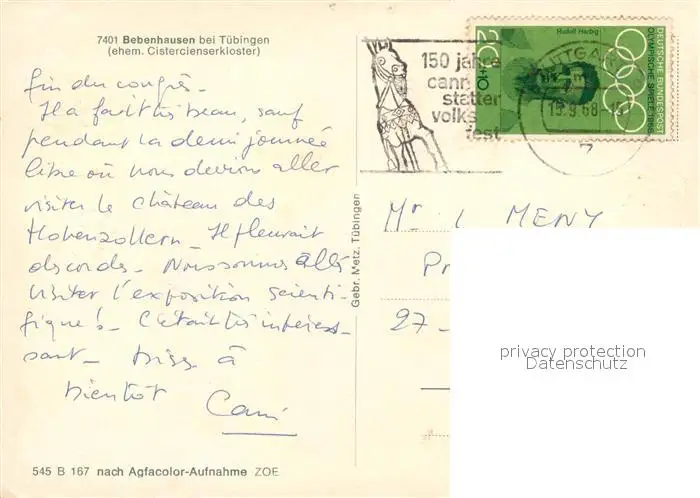 7401 Bebenhausen bei Tübingen
(ehem. Cistercienserkloster)
fin du congrès.
Il a fait très beau, sauf
pendant la demi journée
libre où nous devions aller
visiter le château des
Hohenzollern. Il pleuvait
des cordes. Nous sommes allés
visiter l'exposition scienti-
fique! C'était très intéres-
sant. à
bientôt
545 B 167 nach Agfacolor-Aufnahme ZOE
Gebr. Metz, Tübingen
150 jahre
cann
statter
volks
fest
Rudolf Harbig
20+10
DEUTSCHE BUNDESPOST
OLYMPISCHE SPIELE 1968
STUTTGA
19.9.68-15
7
Mr L MENY
Pr
27-
privacy protection
Datenschutz